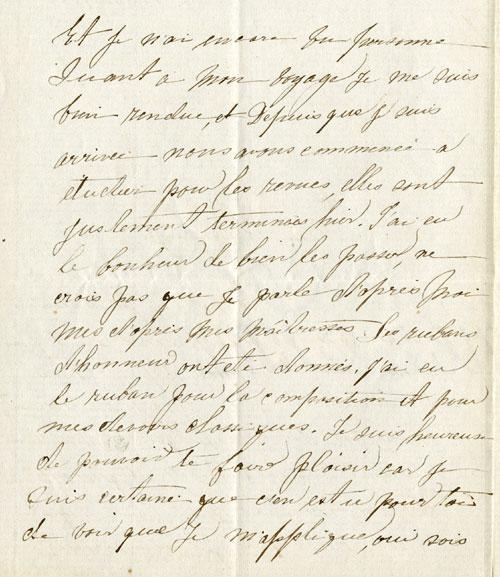 Et je n'ai encore vu personne
Quant a mon voyage je me suis
bien rendue, et Depuis que je suis
arrivée nous avons commencé a
étudier pour les revues, elles sont
justement terminées hier. J'ai eu
le bonheur de bien les passer, ne
crois pas que je parle d'après moi
mes d'après mes maîtresses. Les rubans
d'honneur ont été donnés. J'ai eu
le ruban pour la composition et pour
mes devoirs classiques. Je suis heureuse
de pouvoir te faire plaisir car je
suis certaine que s'en est un pour toi
de voir que je m'applique, oui sois